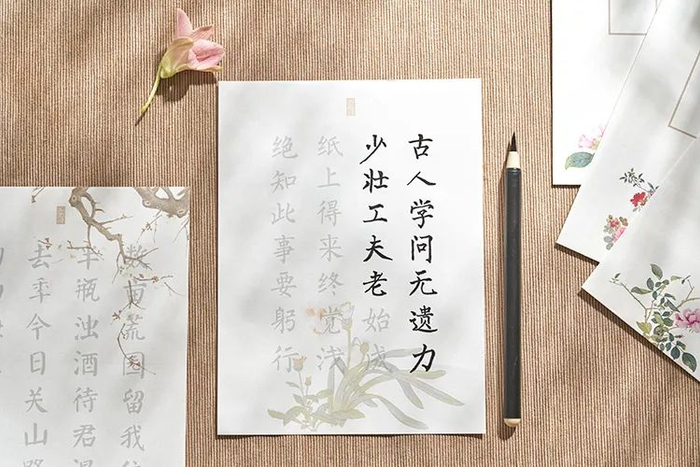 古人学问无遗力
少壮工夫老始成
纸上得来终觉浅
绝知此事要躬行
数亩荒园留我
半瓶浊酒待君
去年今日关山